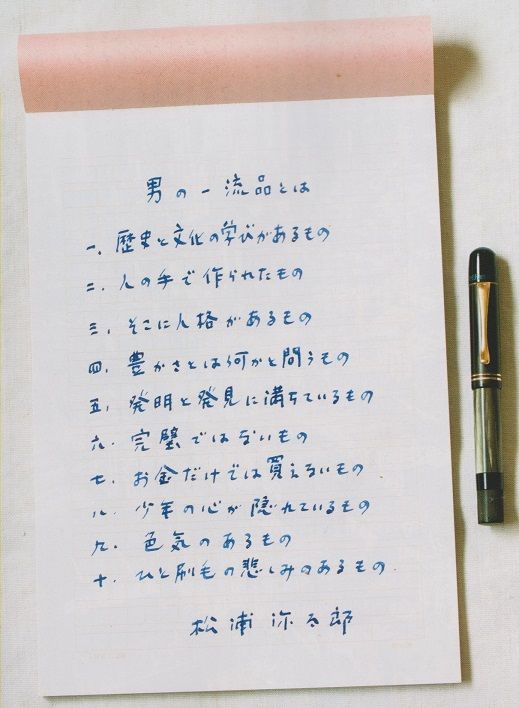 男の一流品とは
一、歴史と文化の学びがあるもの
二、人の手で作られたもの
三、そこに人格があるもの
四、豊かさとは何かと問うもの
五、発明と発見に満ちているもの
六、完璧ではないもの
七、お金だけでは買えないもの
八、少年の心が隠れているもの
九、色気のあるもの
十、ひと刷毛の悲しみのあるもの.
松浦弥太郎